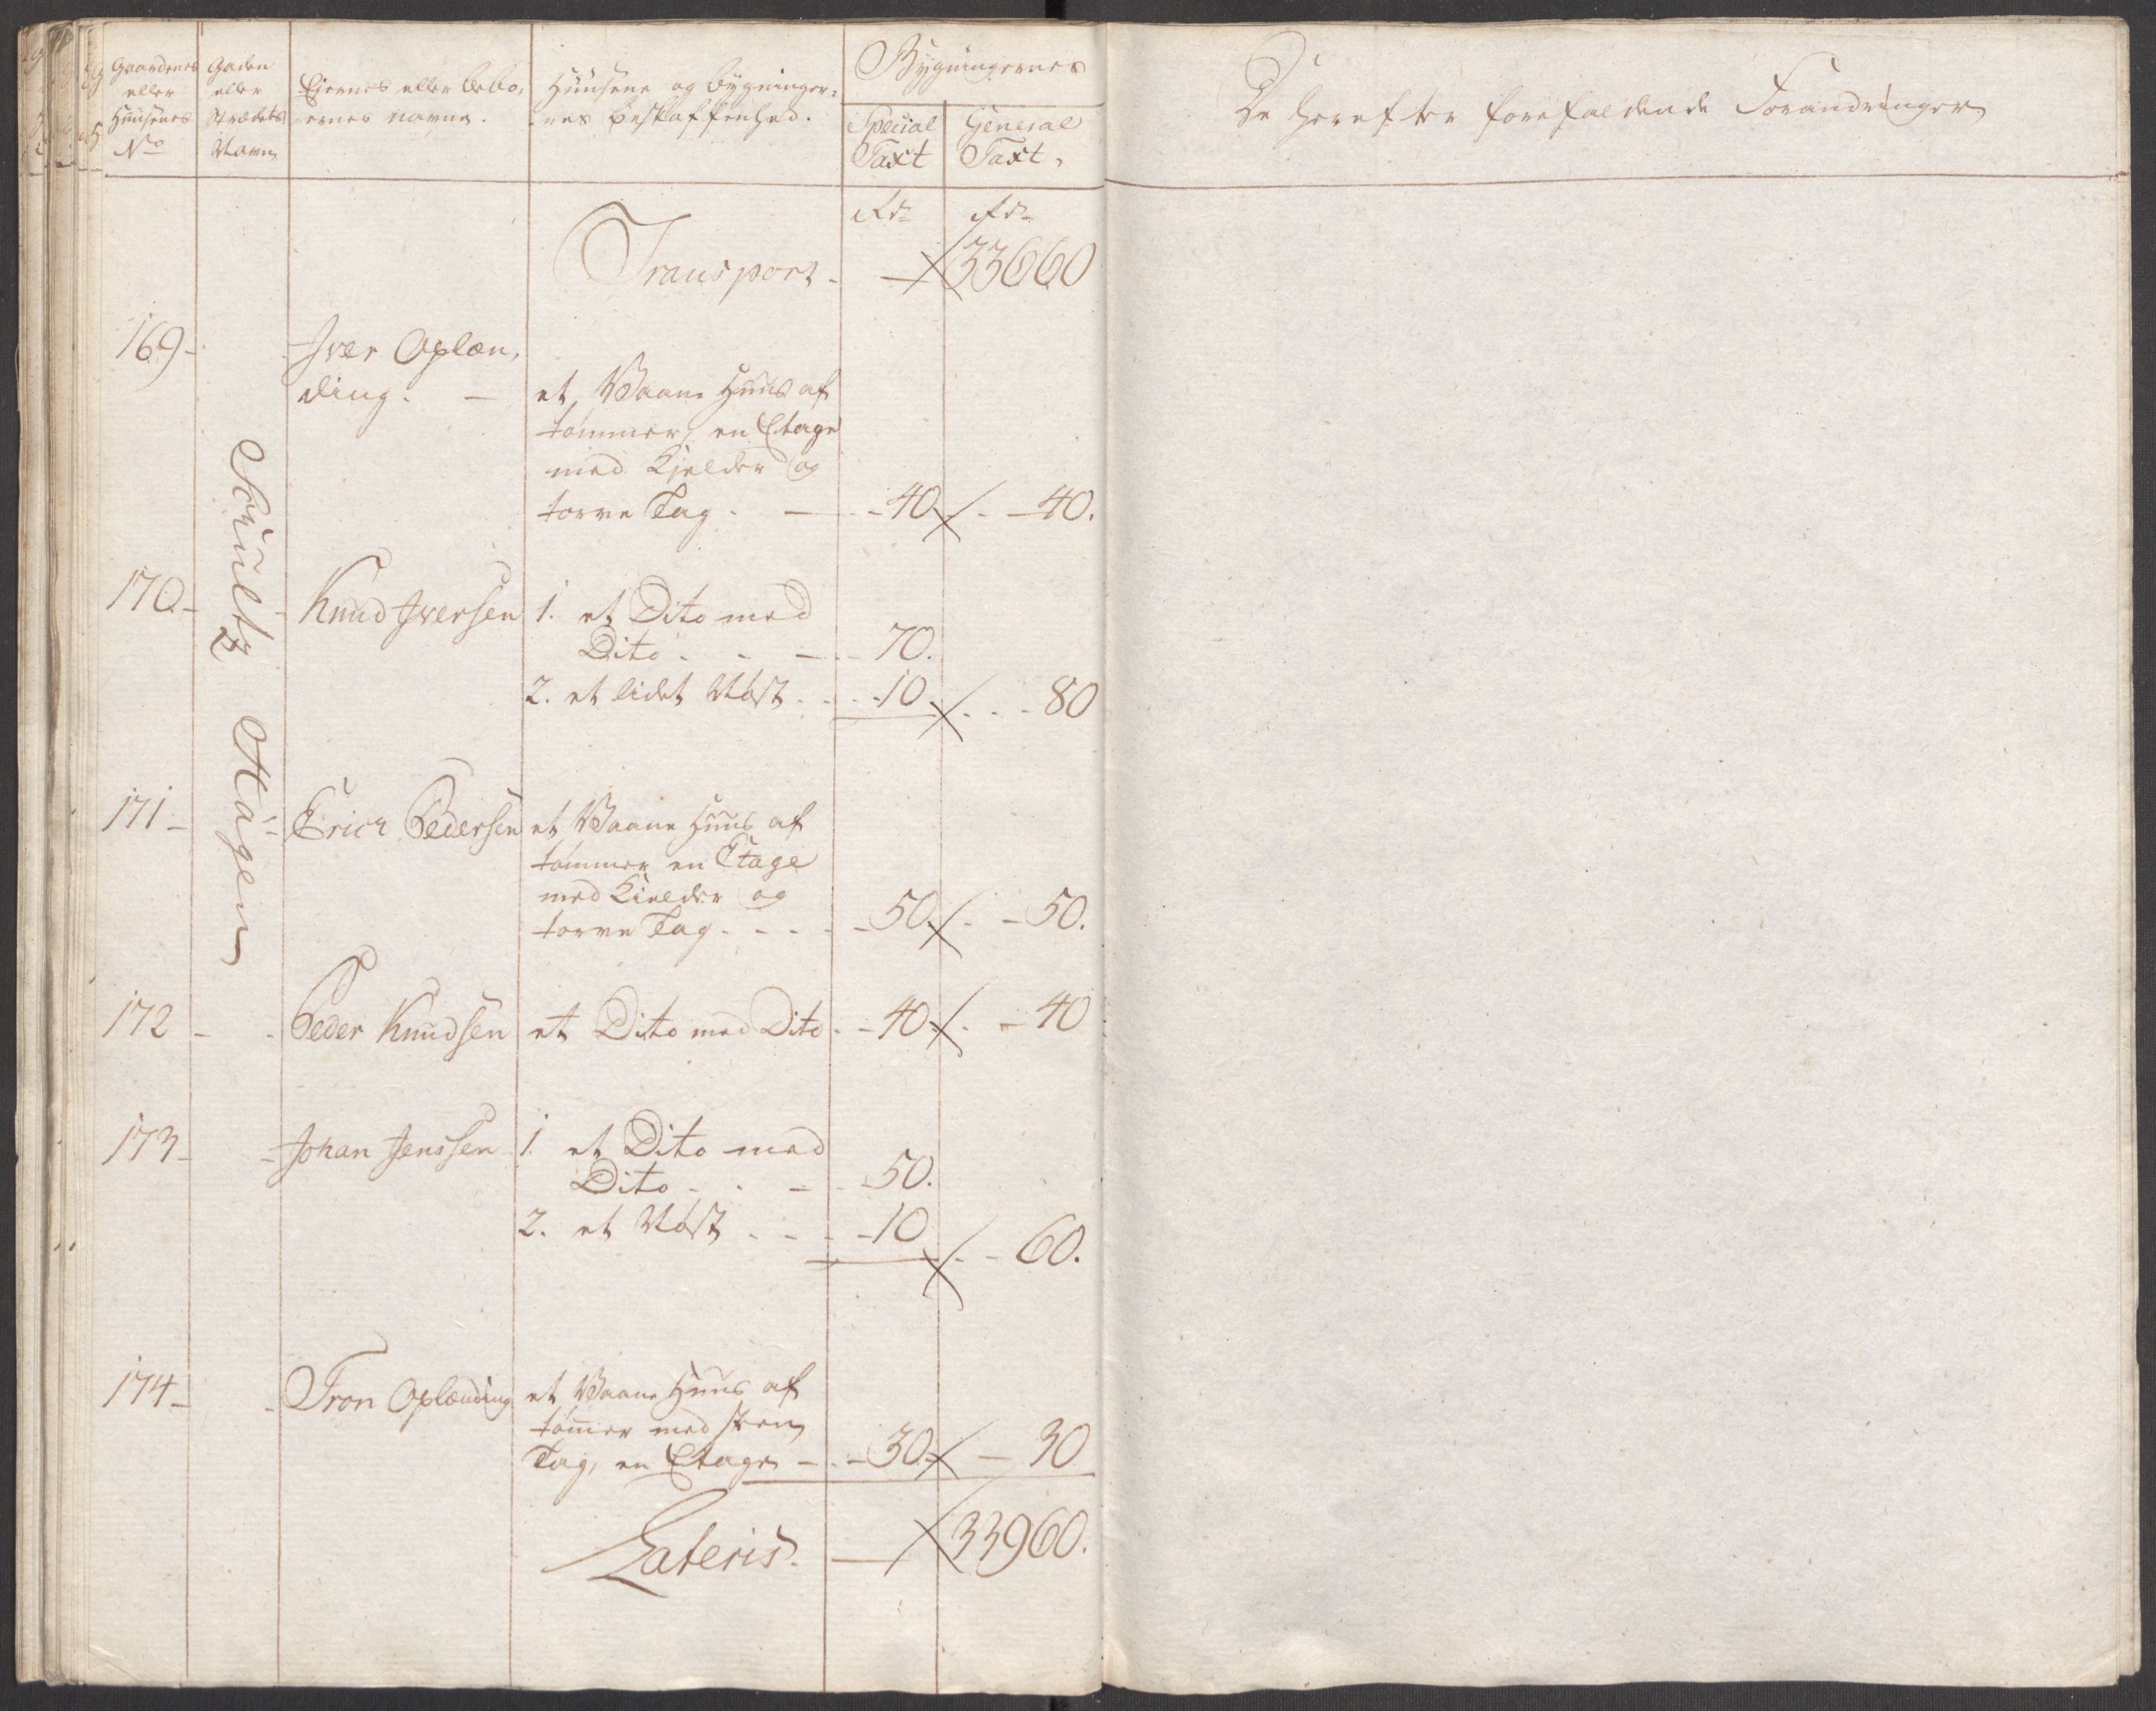 Gaardenes
eller
Huusenes
No
Gaden
eller
Strædets
Navn
Eiernes eller Bebo-
ernes navne.
Huusene og bygninger-
nes Beskaffenhed.
Bygningernes
Special
Taxt
General
Taxt.
De herefter forefaldende Forandringer
Rdr
Rdr
Transport - 33660
169- Iver Oplæn-
ding. - et Vaane Huus af
tømmer, en Etage
med Kjelder og
torve Tag. - 40. - 40.
Schultz Hagen
170- Knud Iversen 1. et Dito med
Dito - - - 70.
2. et lidet Nøst - - 10 - - 80
171- Erich Pedersen et Vaane Huus af
tømmer en Etage
med Kielder og
torve Tag - - - 50 - - 50.
172 - - Peder Knudsen et Dito med Dito - 40 - - 40
173- - Johan Jenssen 1. et Dito med
Dito - - - 50.
2. et Nøst - - - 10 - - 60.
174- - Tron Oplænding et Vaane Huus af
tømer med steen
Tag, en Etage - - 30 - 30
Lateris. - 33960.